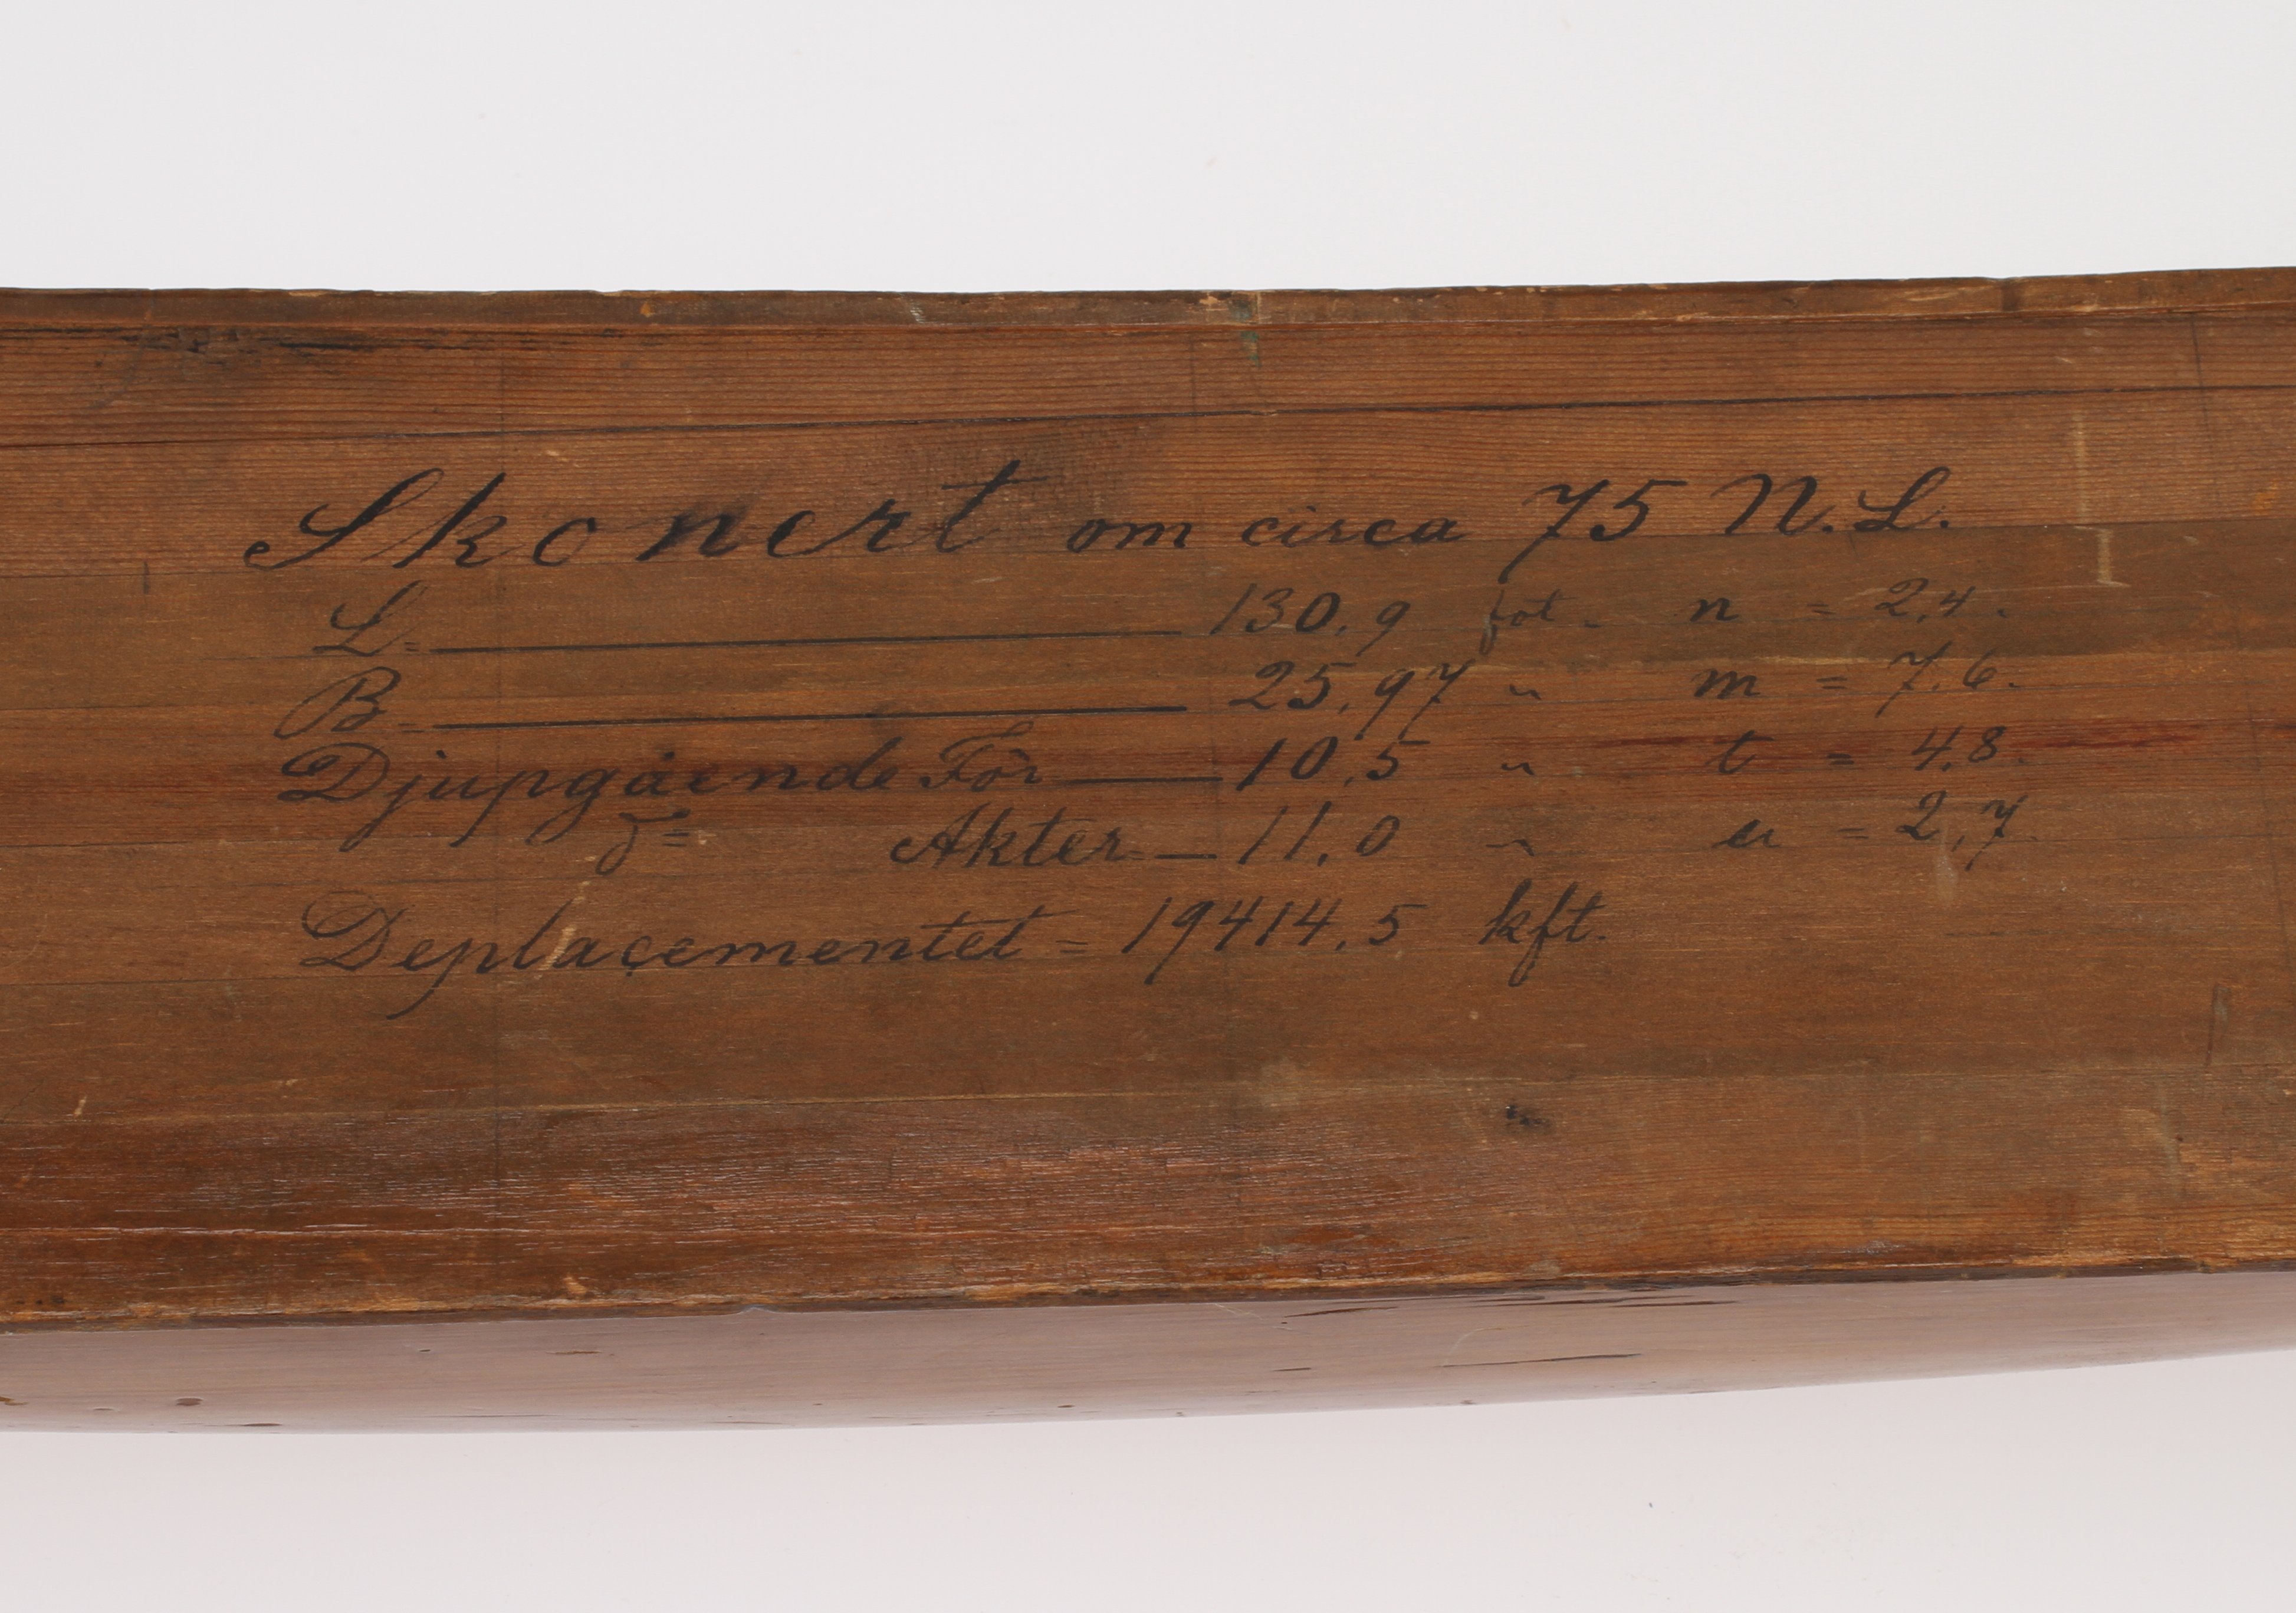 Skonert om circa 75 N.L.
L= 130,9 fot. n = 2,4.
B= 25,97 " m = 7,6.
Djupgående För 10,5 " t = 4,8.
D= Akter 11,0 " u = 2,7.
Deplaçementet = 19414,5 kft.